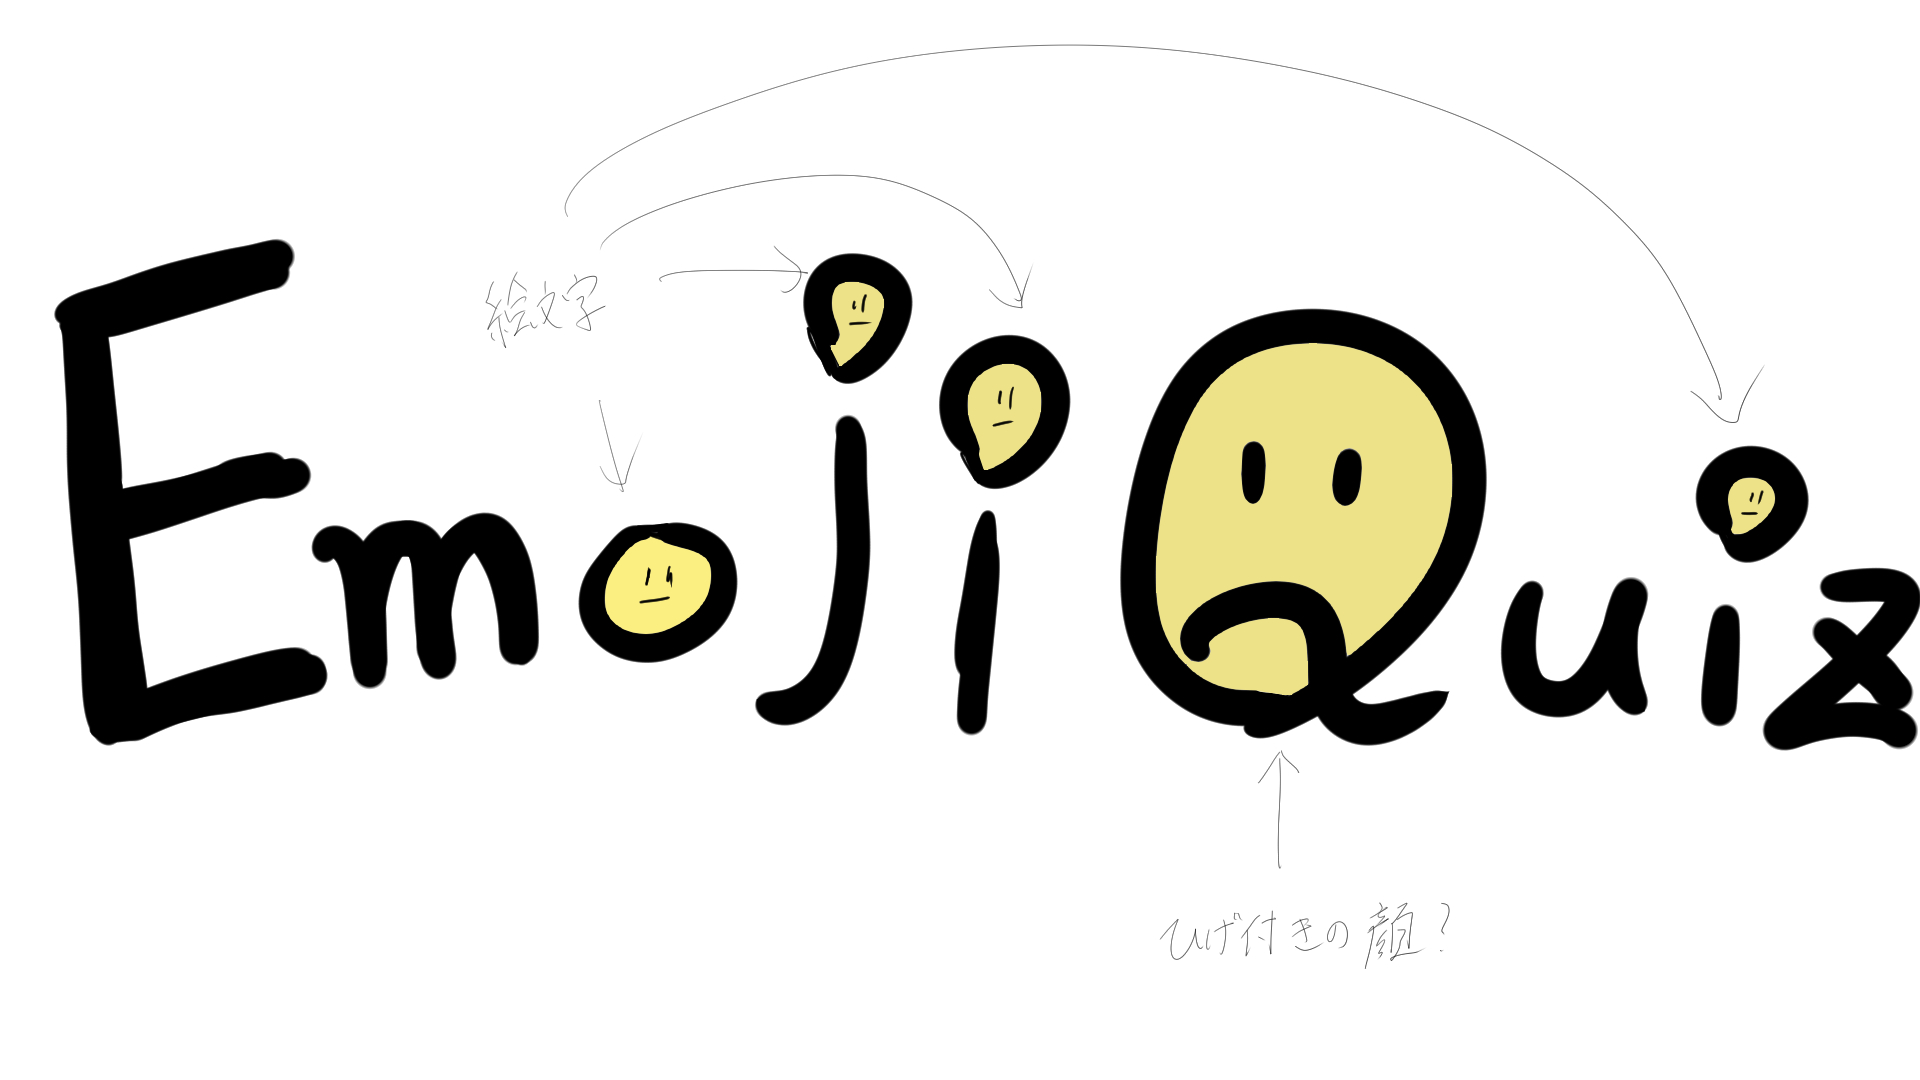 絵文字
Emoji Quiz
ひげ付きの顔?